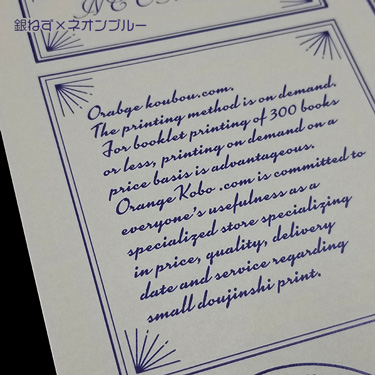 銀ねず×ネオンブルー
Orabge koubou.com.
The printing method is on demand.
For booklet printing of 300 books
or less, printing on demand on a
price basis is advantageous.
Orange Kobo .com is committed to
everyone's usefulness as a
specialized store specializing
in price, quality, delivery
date and service regarding
small doujinshi print.